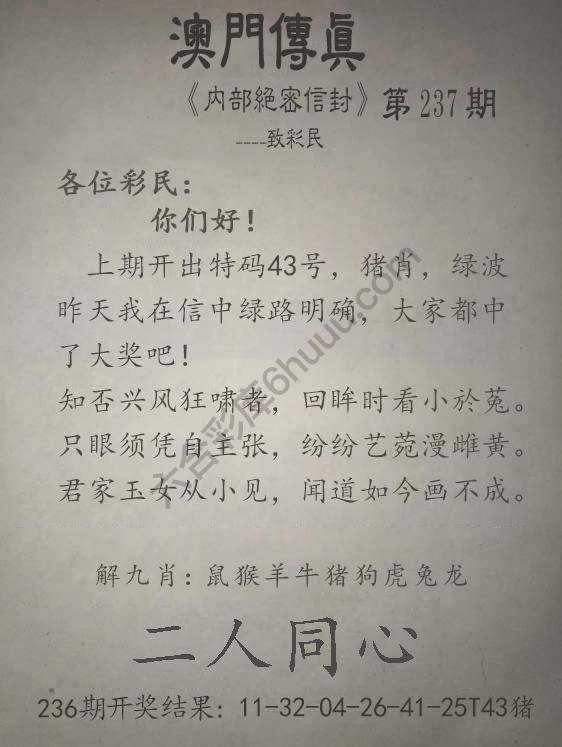 澳門傳真
《内部絕密信封》第237期
----致彩民
各位彩民：
你们好！
上期开出特码43号，猪肖，绿波
昨天我在信中绿路明确，大家都中
了大奖吧！
知否兴风狂啸者，回眸时看小於菟。
只眼须凭自主张，纷纷艺菀漫雌黄。
君家玉女从小见，闻道如今画不成。
解九肖：鼠猴羊牛猪狗虎兔龙
二人同心
236期开奖结果：11-32-04-26-41-25T43猪
六合彩库6huuu.com